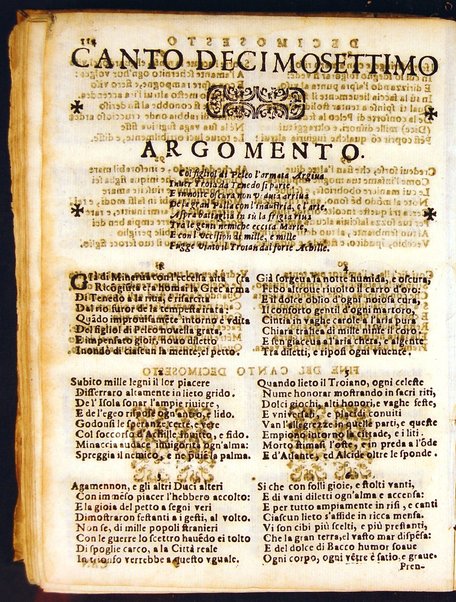 CANTO DECIMOSETTIMO
ARGOMENTO.
Col figliol di Peleo l'armata Argiua
Inuer Troia da Tenedo si parte,
E in notte oscura non
De la gran Palla con l'industria, e l'arte,
Aspra battaglia in sù la frigia riua
Tra le genti nemiche eccita Marte,
E con l'occision di mille, e mille
Fugge vinto il Troian dal forte Achille.
1
Già di Minerua con l'eccelsa aita
Ricoglista era homai la Grec'arma
Di Tenedo a la riua, e risarcita
Dal rio furor de la tempestrata:
Quádo improuisamente intorno è vdita
Del figliol di Peleo nouella grata,
E impensato gioir, nouo diletto
Inondò di ciascun la mente, e'l petto.
Subito mille legni il lor piacere
Disserraro altamente in lieto grido.
De l'Isola sonar l'ampie riuiere,
E de l'egeo rispose ogn'antro, e lido.
Godonsi le
Col soccorso d'Achille inuitto, e fido.
Minaccia audace inuigorita ogn'alma:
Spreggia il nemico, e ne puie la palma.
Agamennon, e gli altri Duci alteri
Con iméso piacer l'hebbero accolto:
E la gioia del petto a segni veri
Dimostraron festanti a i gesti, al volto.
Non se, di mille popoli stranieri
Con le guerre lo scettro hauédo ei tolto
Di spoglie carco, a la Città reale
In trionfo verrebbe a questo vguale.
Già sorgeua la notte humida, e oscura,
Febo altroue riuolto il carro d'oro:
E il dolce oblio d'ogni noiosa cura,
Il conforto gentil d'ogni martoro,
Cinta in vaghe carole a l'aria pura
Chiara trafica di mille ninfe il coro.
E sen giaceua al'aria cheta, e algente
Tra diletti, e riposi ogni viuente.
Quando lieto il Troiano, ogni celeste
Nume honorar mostrando in sacri riti,
Dolci giochi, alti honori, e vaghe feste,
E viui e placidi conuiti
Van l'allegrezze in quelle parti, e queste
Empiono intorno e cittade, e i liti.
Morto stimasi l'oste, e in preda a l'óde
E d'Atlante, ed Alcide oltre le sponde.
Si che con solli gioie, e stolti vanti,
E di vani diletti ogn'alma e accensa:
E per tutto ampiamente in risi, e canti
Ciascun lieto s'asside in ricca mensa.
Vi son cibi più scelti, e più prestanti,
Che la gran terra, el vasto mar dispésa:
E del dolce di Bacco humor soaue
Ogni corpo, ogni vétre è satio, e graue.
Pren-